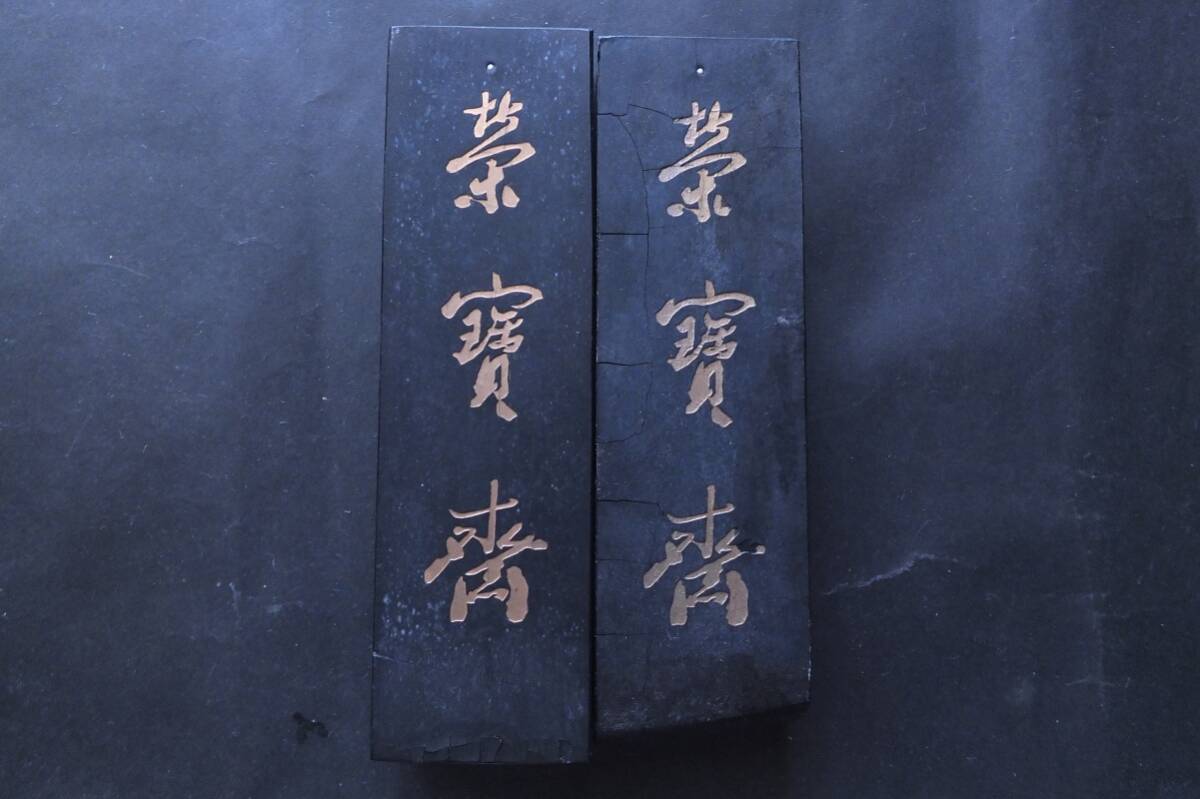 榮寶齋
榮寶齋